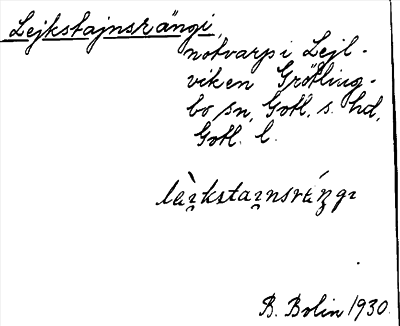 Lejkstajnsrängi,
notvarp i Lejl-
viken Grötling-
bo sn, Gotl. s. hd,
Gotl. l.
làɪ̯kstaɪ̯nsrä́ŋgɪ
B. Bolin 1930.